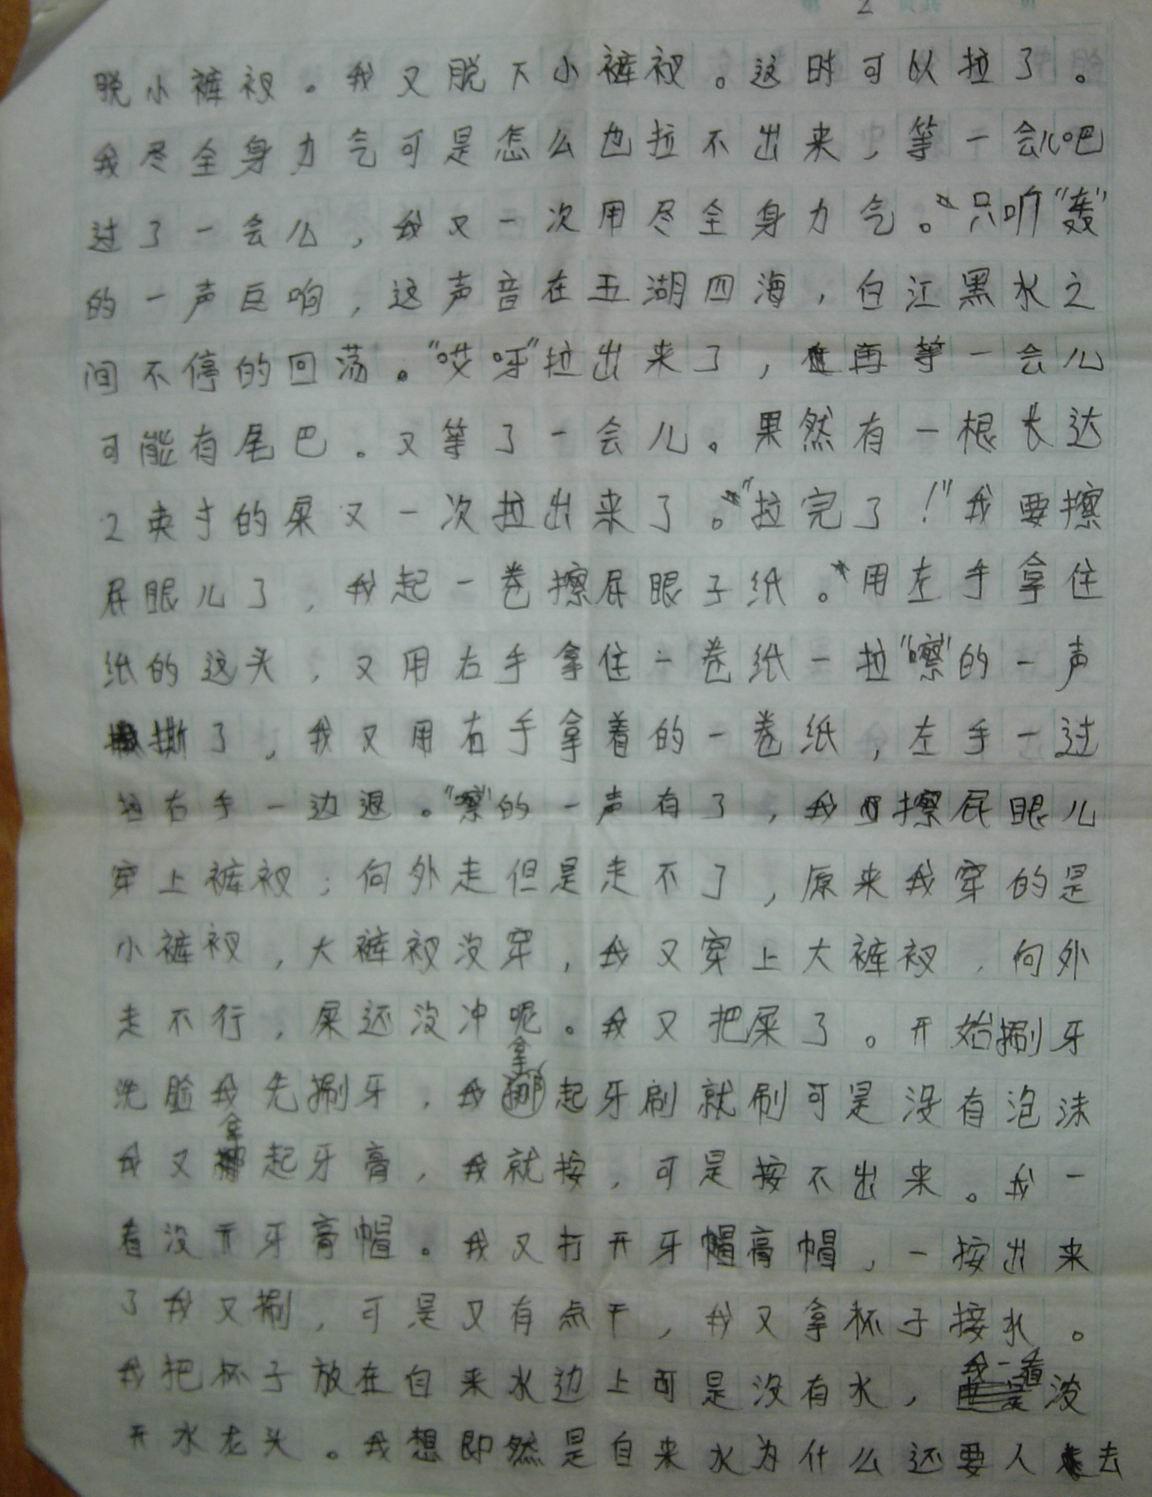 2
脱小裤衩。我又脱下小裤衩。这时可以拉了。
我尽全身力气可是怎么也拉不出来，等一会儿吧
过了一会儿，我又一次用尽全身力气。只听“轰”
的一声巨响，这声音在五湖四海，白江黑水之
间不停的回荡。“哎呀”拉出来了，再等一会儿
可能有尾巴。又等了一会儿。果然有一根长达
2英寸的屎又一次拉出来了。“拉完了！”我要擦
屁眼儿了，我起一卷擦屁眼子纸。用左手拿住
纸的这头，又用右手拿住一卷纸一拉“嚓”的一声
撕了，我又用右手拿着的一卷纸，左手一过
右手一边退。“嚓”的一声有了，我擦屁眼儿
穿上裤衩；向外走但是走不了，原来我穿的是
小裤衩，大裤衩没穿，我又穿上大裤衩，向外
走不行，屎还没冲呢。我又把屎了。开始捌牙
洗脸我先捌牙，我拿起牙刷就刷可是没有泡沫
我又拿起牙膏，我就按，可是按不出来。我一
看没开牙膏帽。我又打开牙膏帽，一按出来
了我又捌，可是又有点干，我又拿杯子接水。
我把杯子放在自来水边上可是没有水，我一看没
开水龙头。我想即然是自来水为什么还要人去